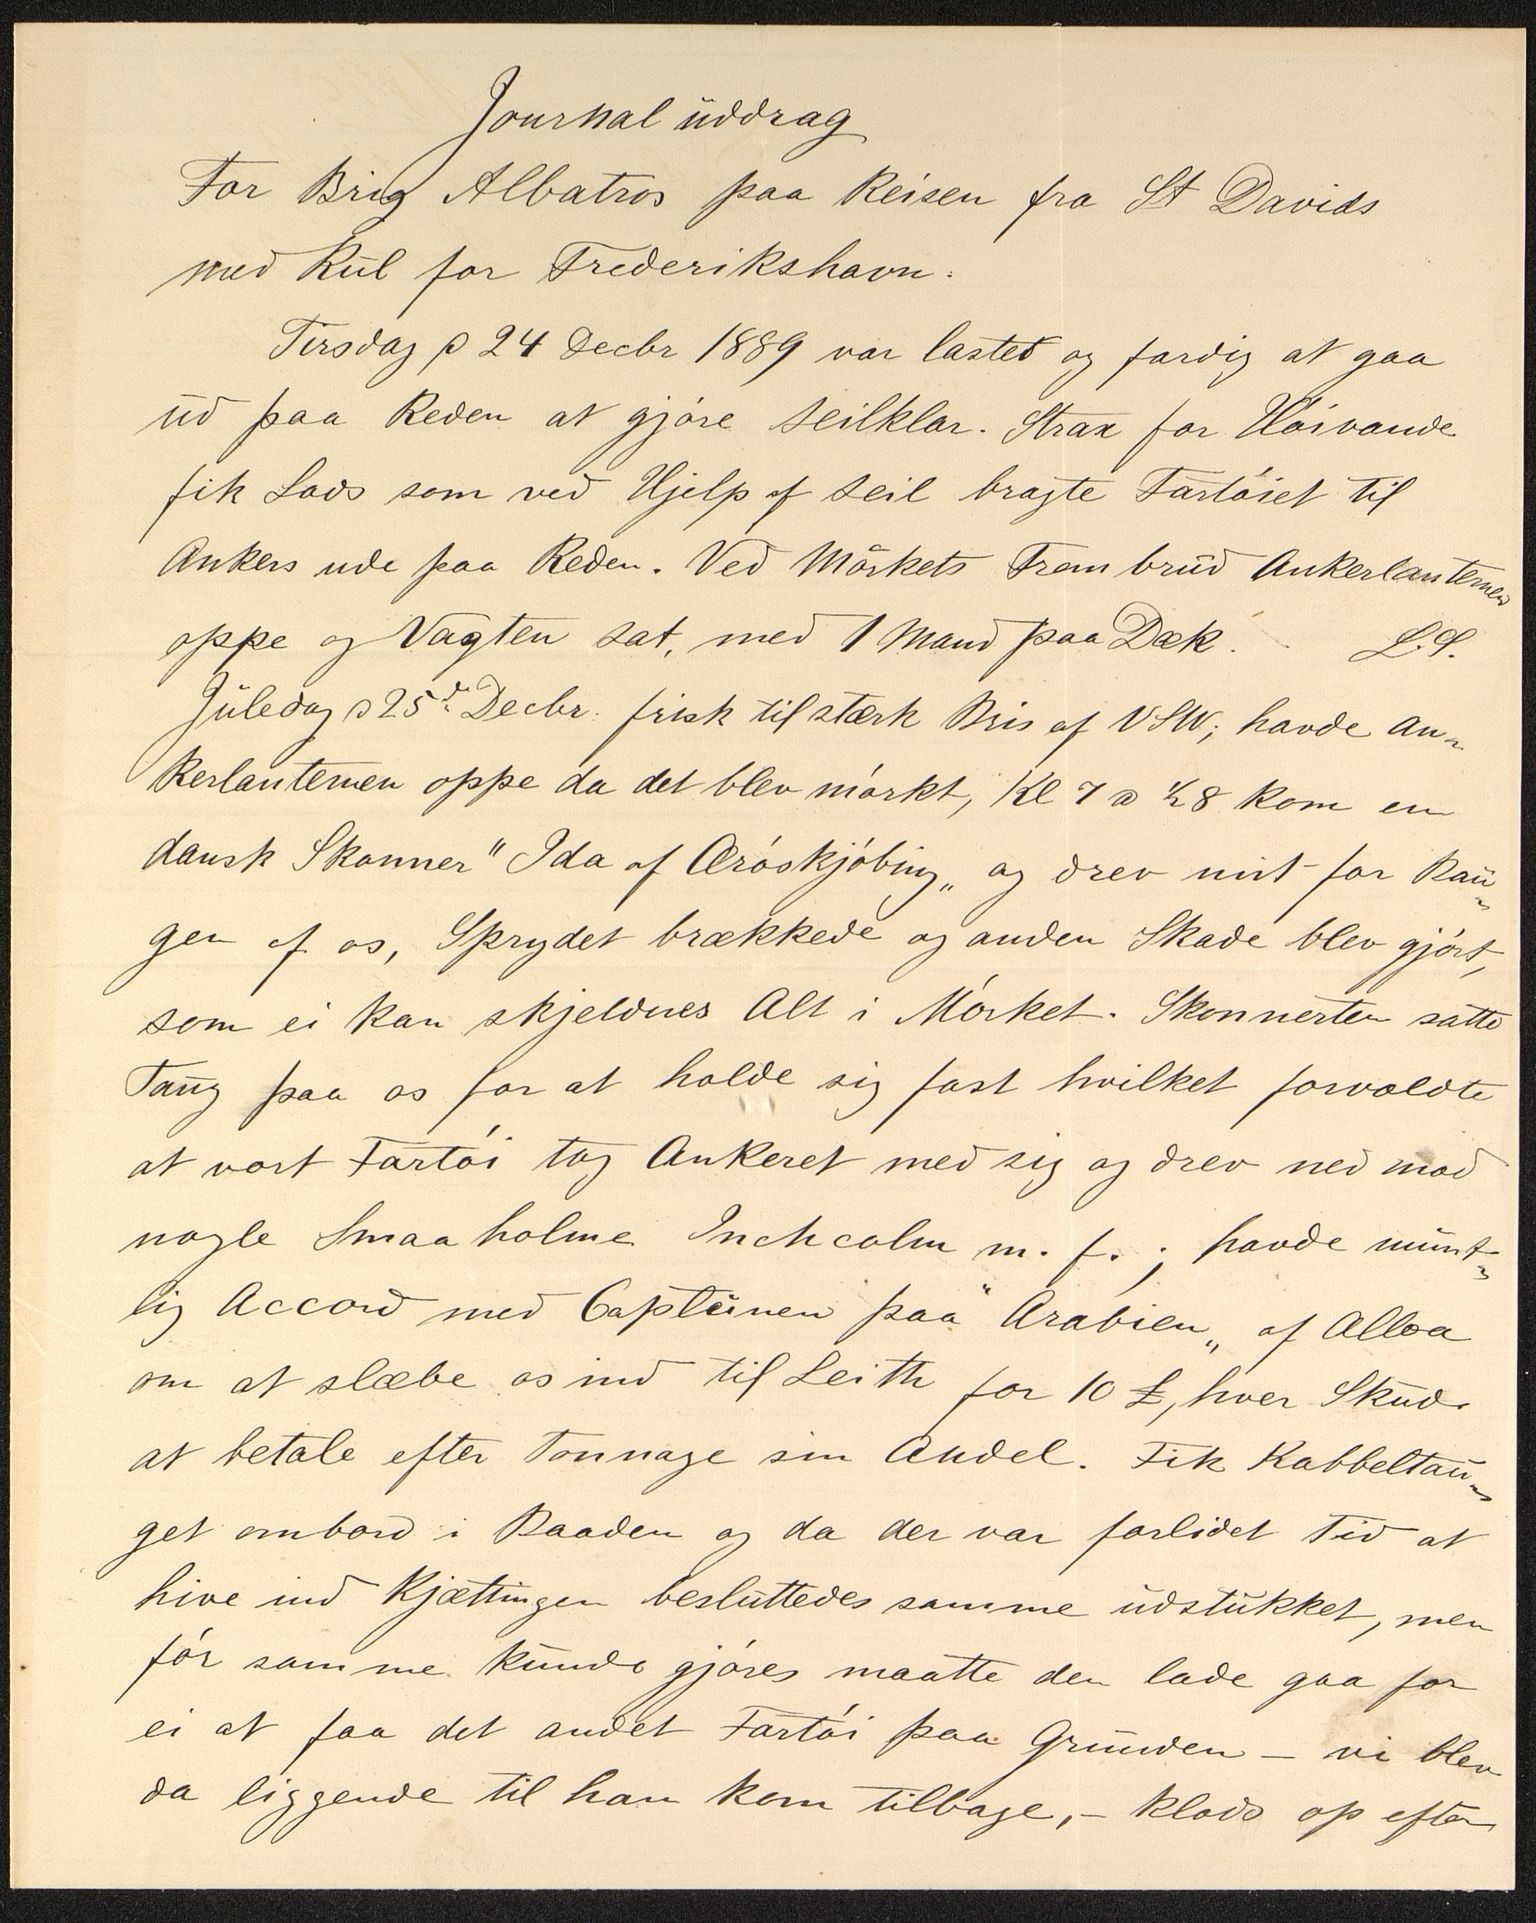 Journal uddrag
For Brig Albatros paa Reisen fra St Davids
med Kul for Frederikshavn.
Tirsdag d 24 Decbr 1889 var lastet og færdig at gaa
ud paa Reden at gjöre seilklar. Strax for Höivande
fik Lods som ved Hjelp af Seil bragte Fartöiet til
Ankers ude paa Reden. Ved Mörkets Frembrud Ankerlanternen
oppe og Vagten sat, med 1 Mand paa Dæk. L.S.
Juledag d 25de Decbr. frisk til stærk Bris af VSW; havde An-
kerlanternen oppe da det blev mörkt, Kl 7 a ½8 kom en
dansk Skonner "Ida af Æröskjöbing„ og drev mit for Bau-
gen af os, Sprydet brækkede og anden Skade blev gjört,
som ei kan skjeldnes Alt i Mörket. Skonnerten satte
Taug paa os for at holde sig fast hvilket forvoldte
at vort Fartöi tog Ankeret med sig og drev ned mod
nogle Smaaholme Inchcolm m. f.; havde münt-
lig Accord med Capteinen paa "Arabien„ af Alloa
om at slæbe os ind til Leith for 10 £, hver Skude
at betale efter Tonnage sin Andel. Fik Kabbeltau-
get ombord i Baaden og da der var forlidet Tid at
hive ind Kjættingen besluttedes samme udstukket, men
för samme kunde gjöres maatte den lade gaa for
ei at faa det andet Fartöi paa Grunden – vi blev
da liggende til han kom tilbage, – klods op efter